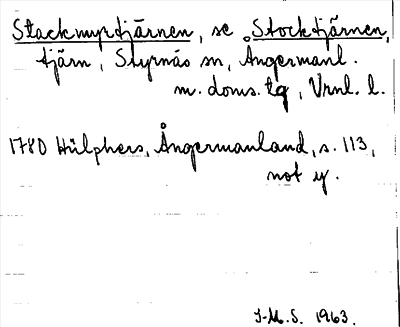 Stackmyrtjärnen, se Stocktjärnen,
tjärn, Styrnäs sn, Ångermanl.
m. doms. tg, Vrnl. l.
1780 Hülphers, Ångermanland, s. 113,
not y.
J-M.S. 1963.